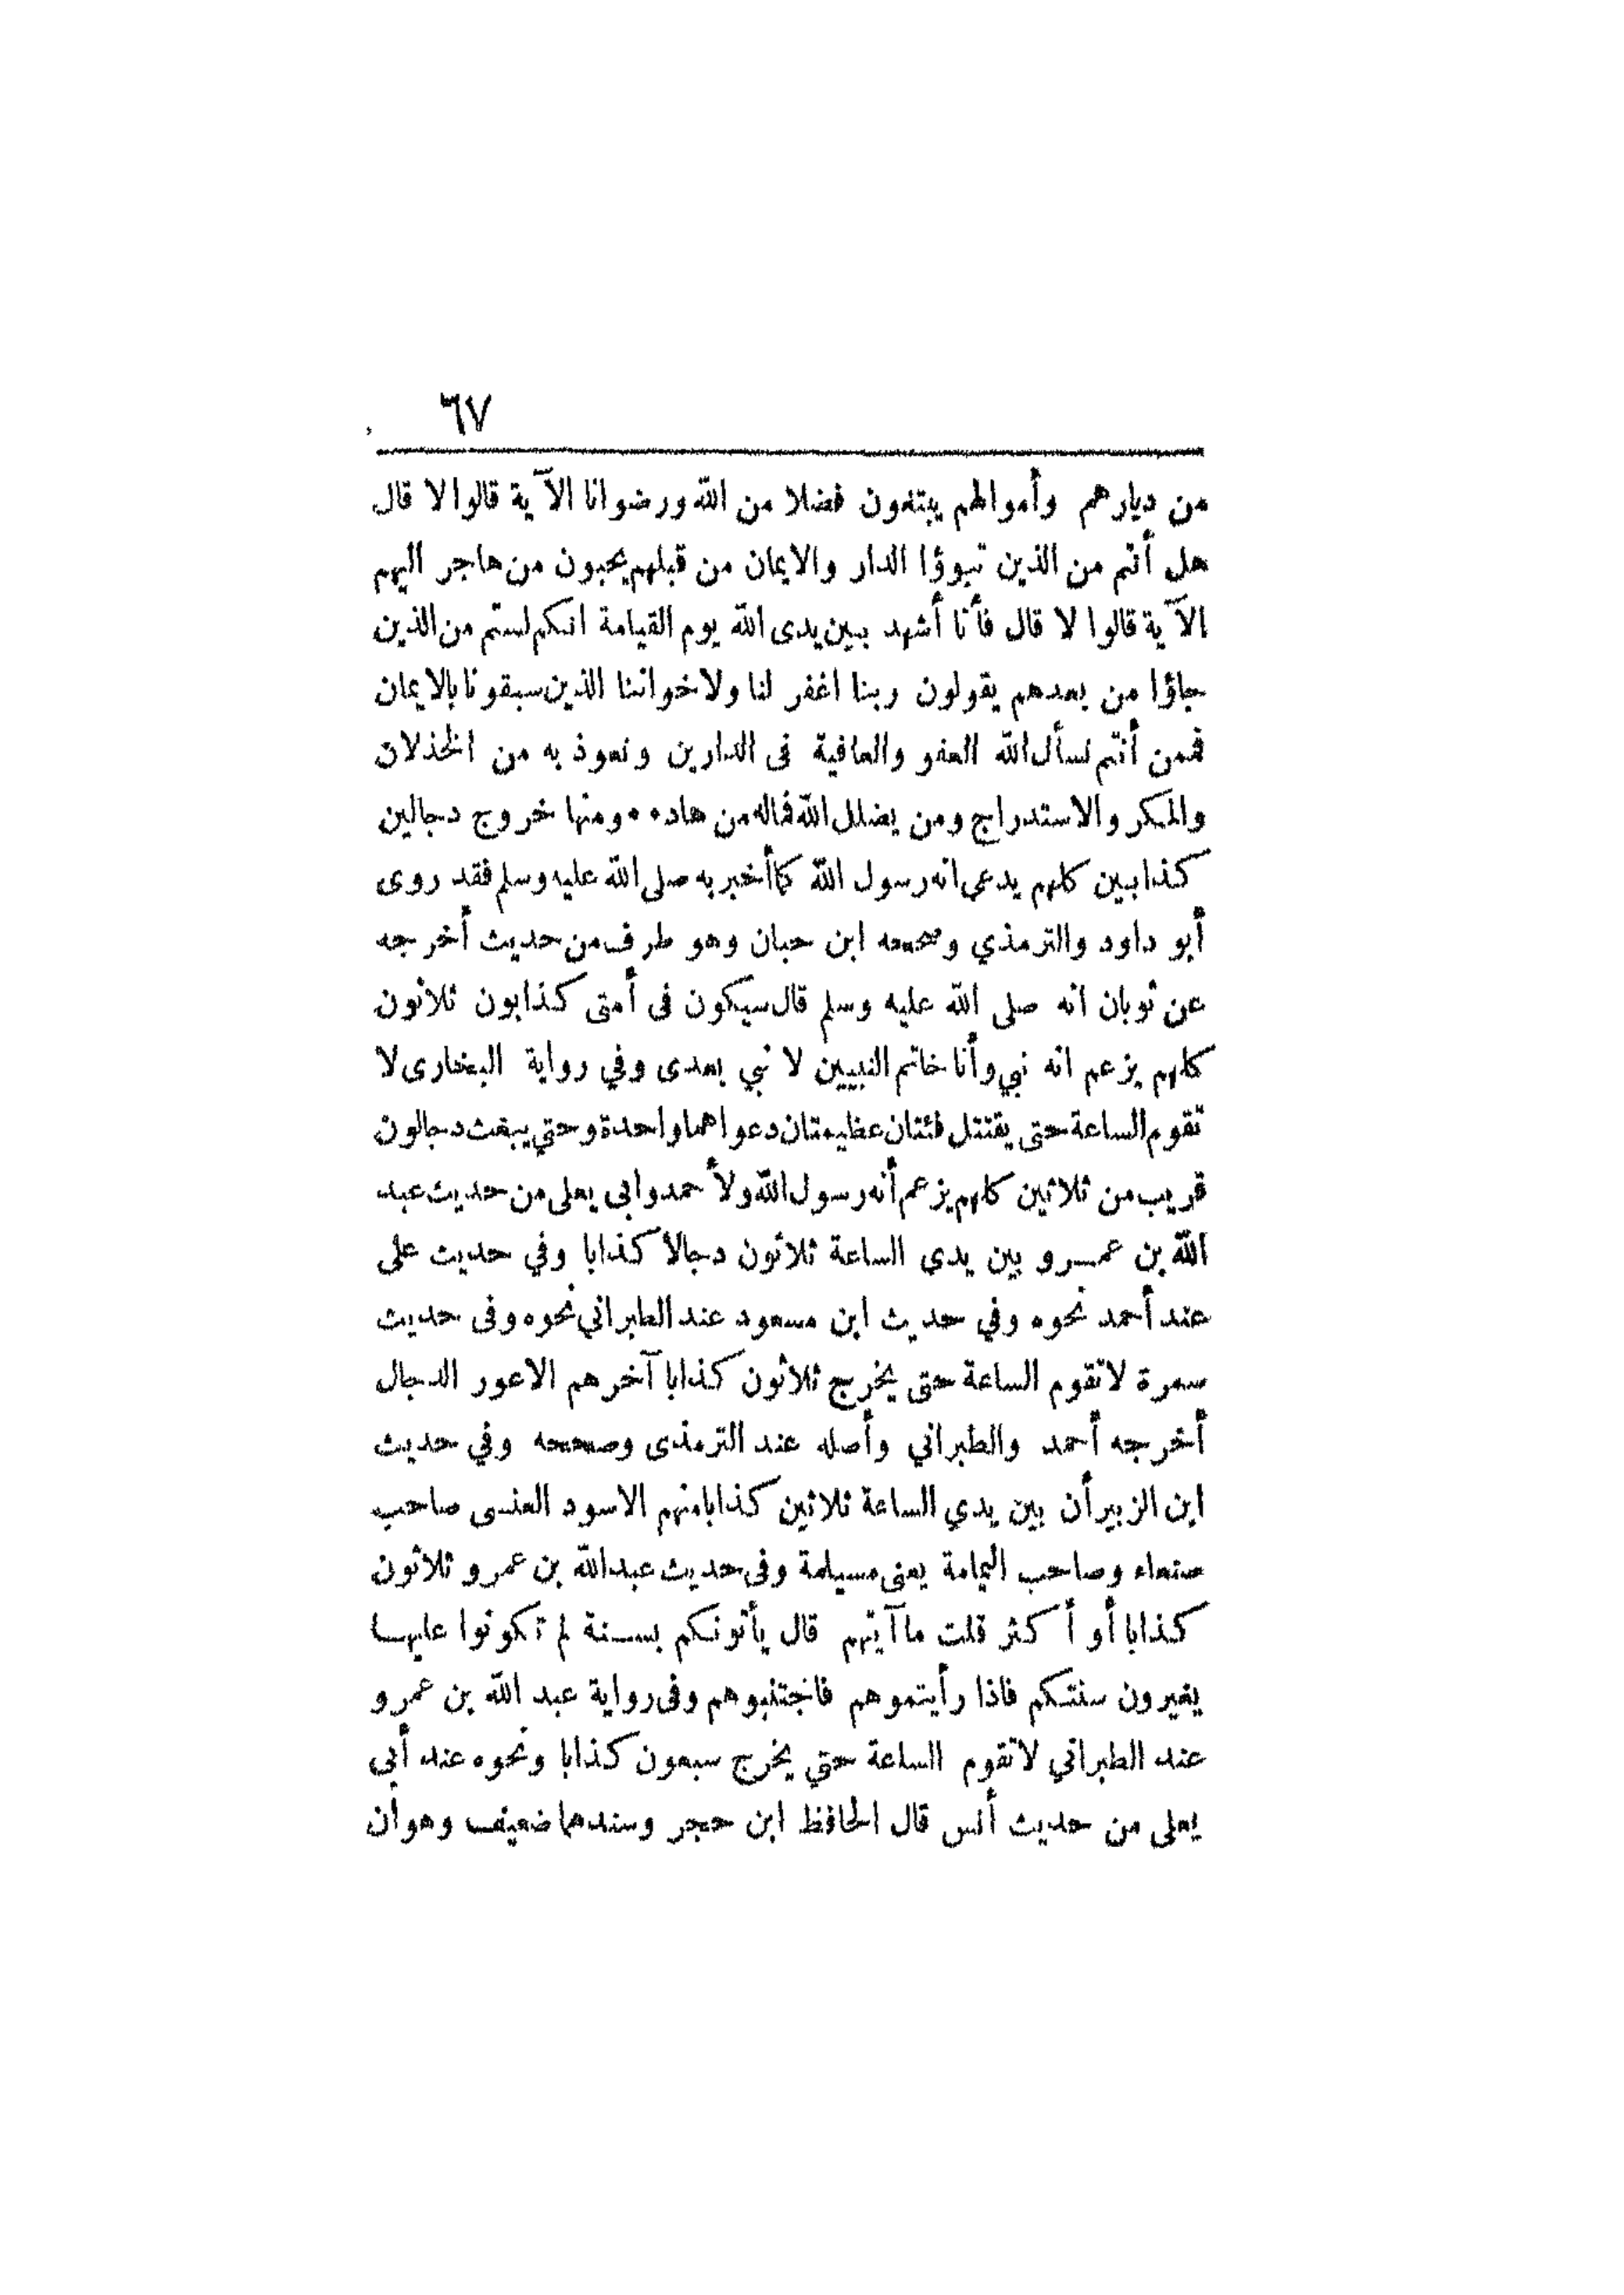 ٦٧
من ديارهم وأموالهم يبتغون فضلا من الله ورضوانا الآية قالوا لا قال
هل أنتم من الذين تبوؤا الدار والايمان من قبلهم يحبون من هاجر اليهم
الآية قالوا لا قال فأنا أشهد بين يدى الله يوم القيامة انكم لستم من الذين
جاؤا من بعدهم يقولون ربنا اغفر لنا ولاخواننا الذين سبقونا بالايمان
فمن أنتم نسأل الله العفو والعافية فى الدارين ونعوذ به من الخذلان
والمكر والاستدراج ومن يضلل الله فماله من هاد •• ومنها خروج دجالين
كذابين كلهم يدعى انه رسول الله كما أخبر به صلى الله عليه وسلم فقد روى
أبو داود والترمذي وصححه ابن حبان وهو طرف من حديث أخرجه
عن ثوبان انه صلى الله عليه وسلم قال سيكون فى أمتى كذابون ثلاثون
كلهم يزعم انه نبي وأنا خاتم النبيين لا نبي بعدى وفي رواية البخارى لا
تقوم الساعة حتى يقتتل فئتان عظيمتان دعواهما واحدة وحتي يبعث دجالون
قريب من ثلاثين كلهم يزعم أنه رسول الله ولأحمد وابى يعلى من حديث عبد
الله بن عمرو بين يدي الساعة ثلاثون دجالا كذابا وفي حديث على
عند أحمد نحوه وفي حديث ابن مسعود عند الطبراني نحوه وفى حديث
سمرة لاتقوم الساعة حتى يخرج ثلاثون كذابا آخرهم الاعور الدجال
أخرجه أحمد والطبراني وأصله عند الترمذى وصححه وفي حديث
ابن الزبير أن بين يدي الساعة ثلاثين كذابا منهم الاسود العنسى صاحب
صنعاء وصاحب اليمامة يعنى مسيلمة وفى حديث عبدالله بن عمرو ثلاثون
كذابا أو أكثر قلت ما آيتهم قال يأتونكم بسنة لم تكونوا عليها
يغيرون سنتكم فاذا رأيتموهم فاجتنبوهم وفى رواية عبد الله بن عمرو
عند الطبراني لاتقوم الساعة حتي يخرج سبعون كذابا ونحوه عند أبى
يعلى من حديث أنس قال الحافظ ابن حجر وسندهما ضعيف وهو ان